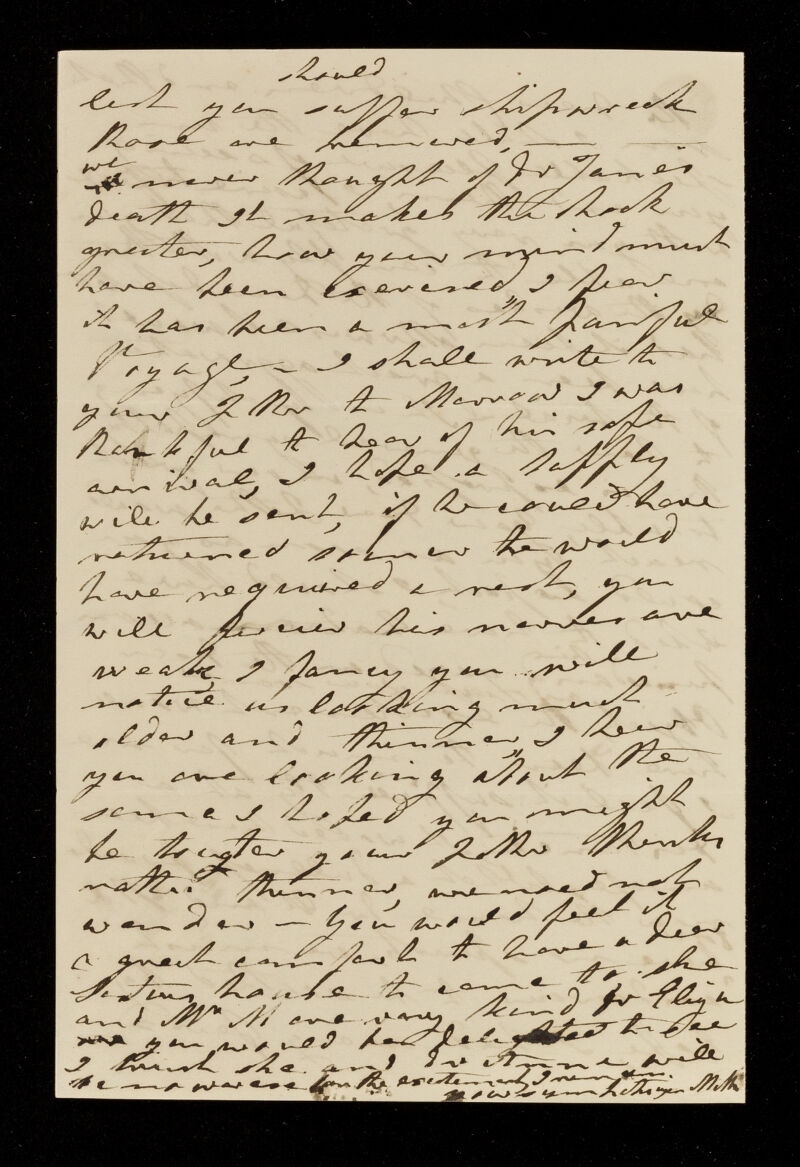 should
lest you suffer shipwreck
those are removed, — —
we never thought of dr Jane's
death It makes the shock
greater, how your mind must
have been exercised, I fear
it has been a most painful
Voyage, — I shall write to
your Fther to Morrow I was
thankful to hear of his safe
arrival, I hope a supply
will be sent, if he could have
returned sooner he would
have required a rest, you
will his nerves are
weak, I fancy you will
notice us looking much
older and thinner, I hear
you are looking about the
same I hoped you might
be your Father thinks
rather thinner, we need not
wonder — You would feel it
a great comfort to have a dear
Sisters house to come to. she
and Mr M are very kind dr Eliza
you would be delighted to see
I trust she and dr Anna will
be no worse for the excitement, I remain
your sympathising Mother